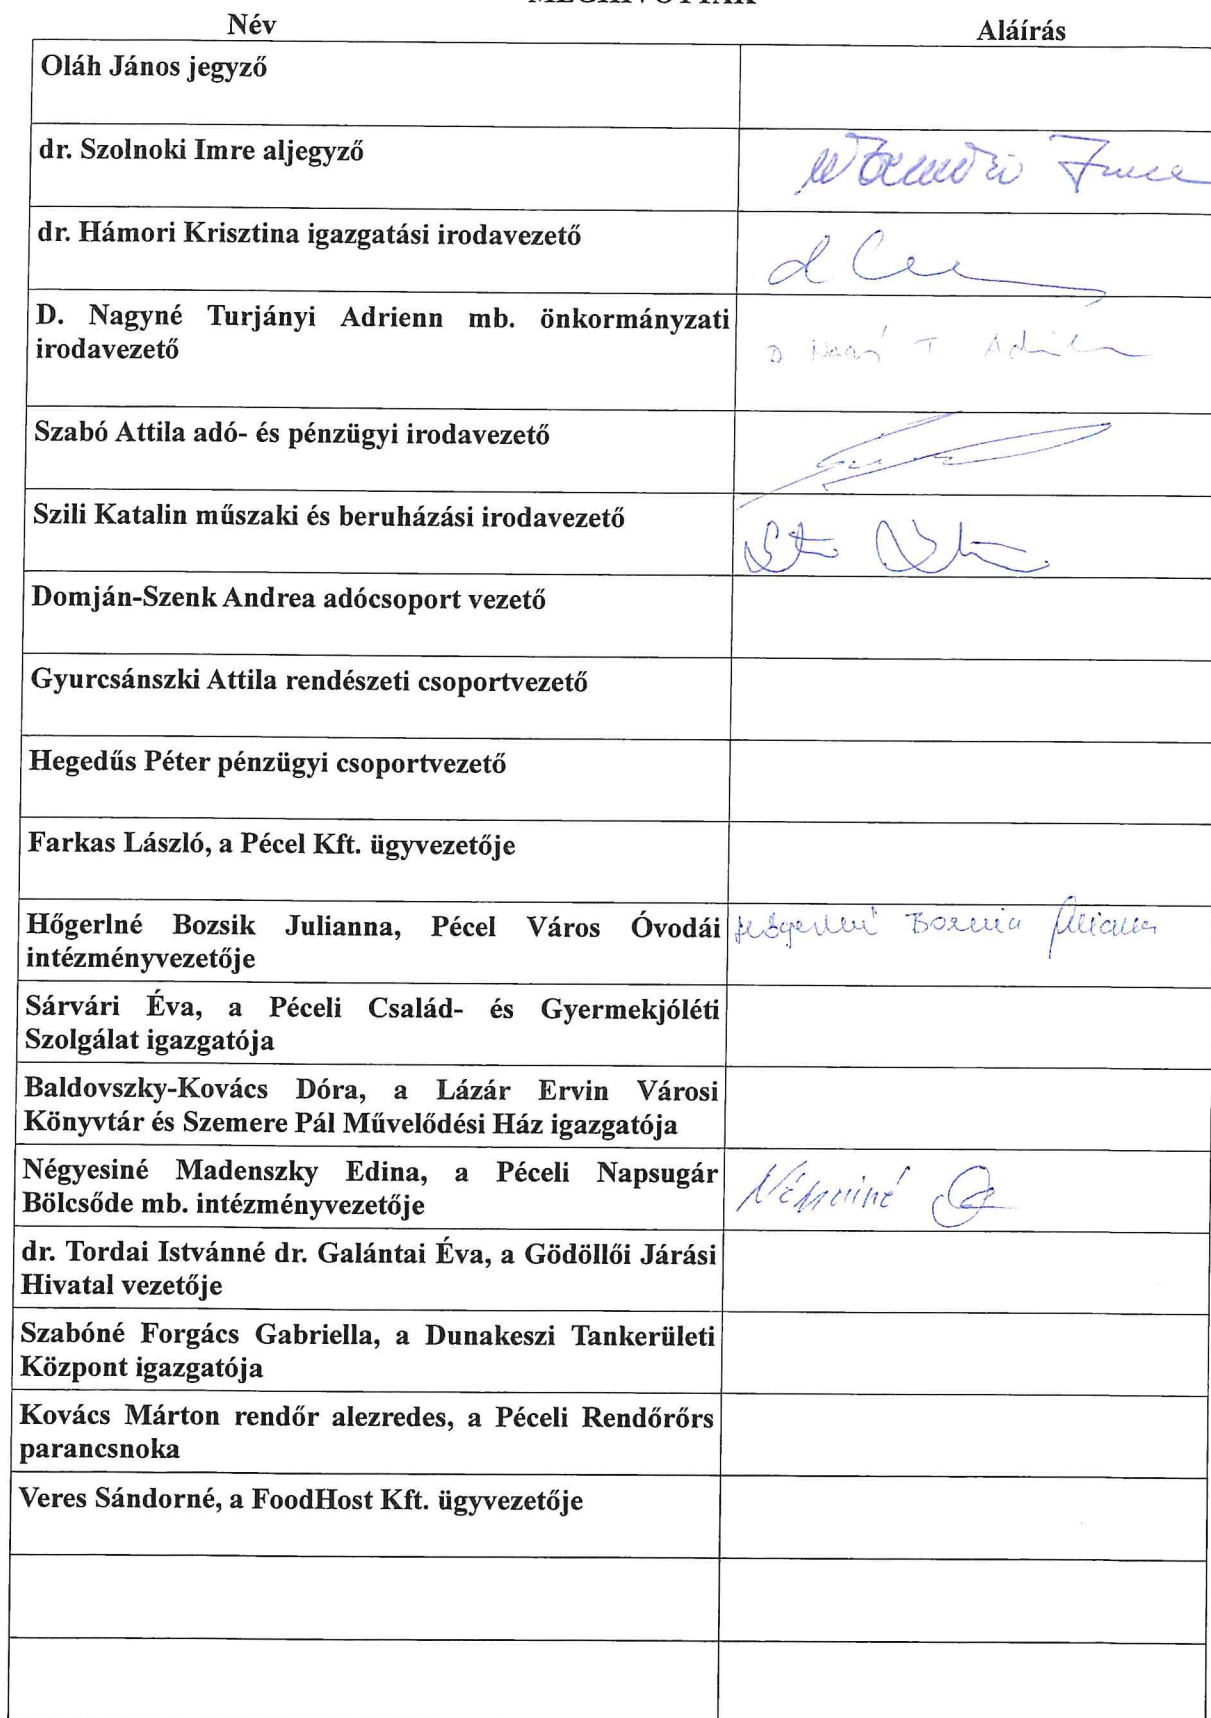 MEGHÍVOTTAK
Név Aláírás
Oláh János jegyző
dr. Szolnoki Imre aljegyző
dr. Hámori Krisztina igazgatási irodavezető
D. Nagyné Turjányi Adrienn mb. önkormányzati
irodavezető
Szabó Attila adó- és pénzügyi irodavezető
Szili Katalin műszaki és beruházási irodavezető
Domján-Szenk Andrea adócsoport vezető
Gyurcsánszki Attila rendészeti csoportvezető
Hegedűs Péter pénzügyi csoportvezető
Farkas László, a Pécel Kft. ügyvezetője
Hőgerlné Bozsik Julianna, Pécel Város Óvodái
intézményvezetője
Sárvári Éva, a Péceli Család- és Gyermekjóléti
Szolgálat igazgatója
Baldovszky-Kovács Dóra, a Lázár Ervin Városi
Könyvtár és Szemere Pál Művelődési Ház igazgatója
Négyesiné Madenszky Edina, a Péceli Napsugár
Bölcsőde mb. intézményvezetője
dr. Tordai Istvánné dr. Galántai Éva, a Gödöllői Járási
Hivatal vezetője
Szabóné Forgács Gabriella, a Dunakeszi Tankerületi
Központ igazgatója
Kovács Márton rendőr alezredes, a Péceli Rendőrőrs
parancsnoka
Veres Sándorné, a FoodHost Kft. ügyvezetője